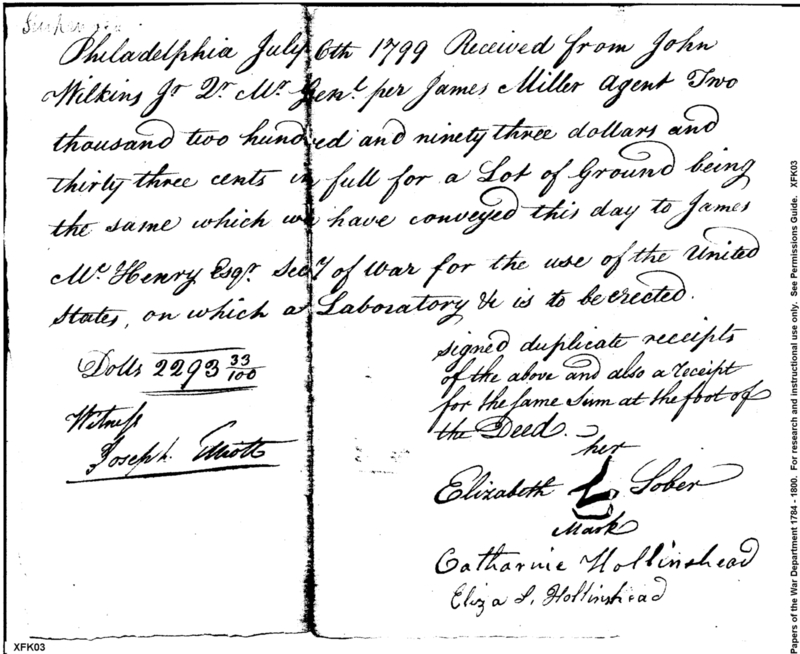 Philadelphia July 6th 1799 Received from John
Wilkins Jr Qr Mr Genl per James Miller Agent Two
thousand two hundred and ninety three dollars and
thirty three cents in full for a Lot of Ground being
the same which we have conveyed this day to James
Mc Henry Esqr Secy of War for the use of the United
States, on which a Laboratory &c is to be erected.
signed duplicate receipts
of the above and also a receipt
for the same Sum at the foot of
the Deed.
Dolls 2293 33/100
Witness
Joseph
her
Elizabeth L Sober
Mark
Catharine Hollinshead
Eliza S. Hollinshead
XFK03
Papers of the War Department 1784 - 1800. For research and instructional use only. See Permissions Guide. XFK03